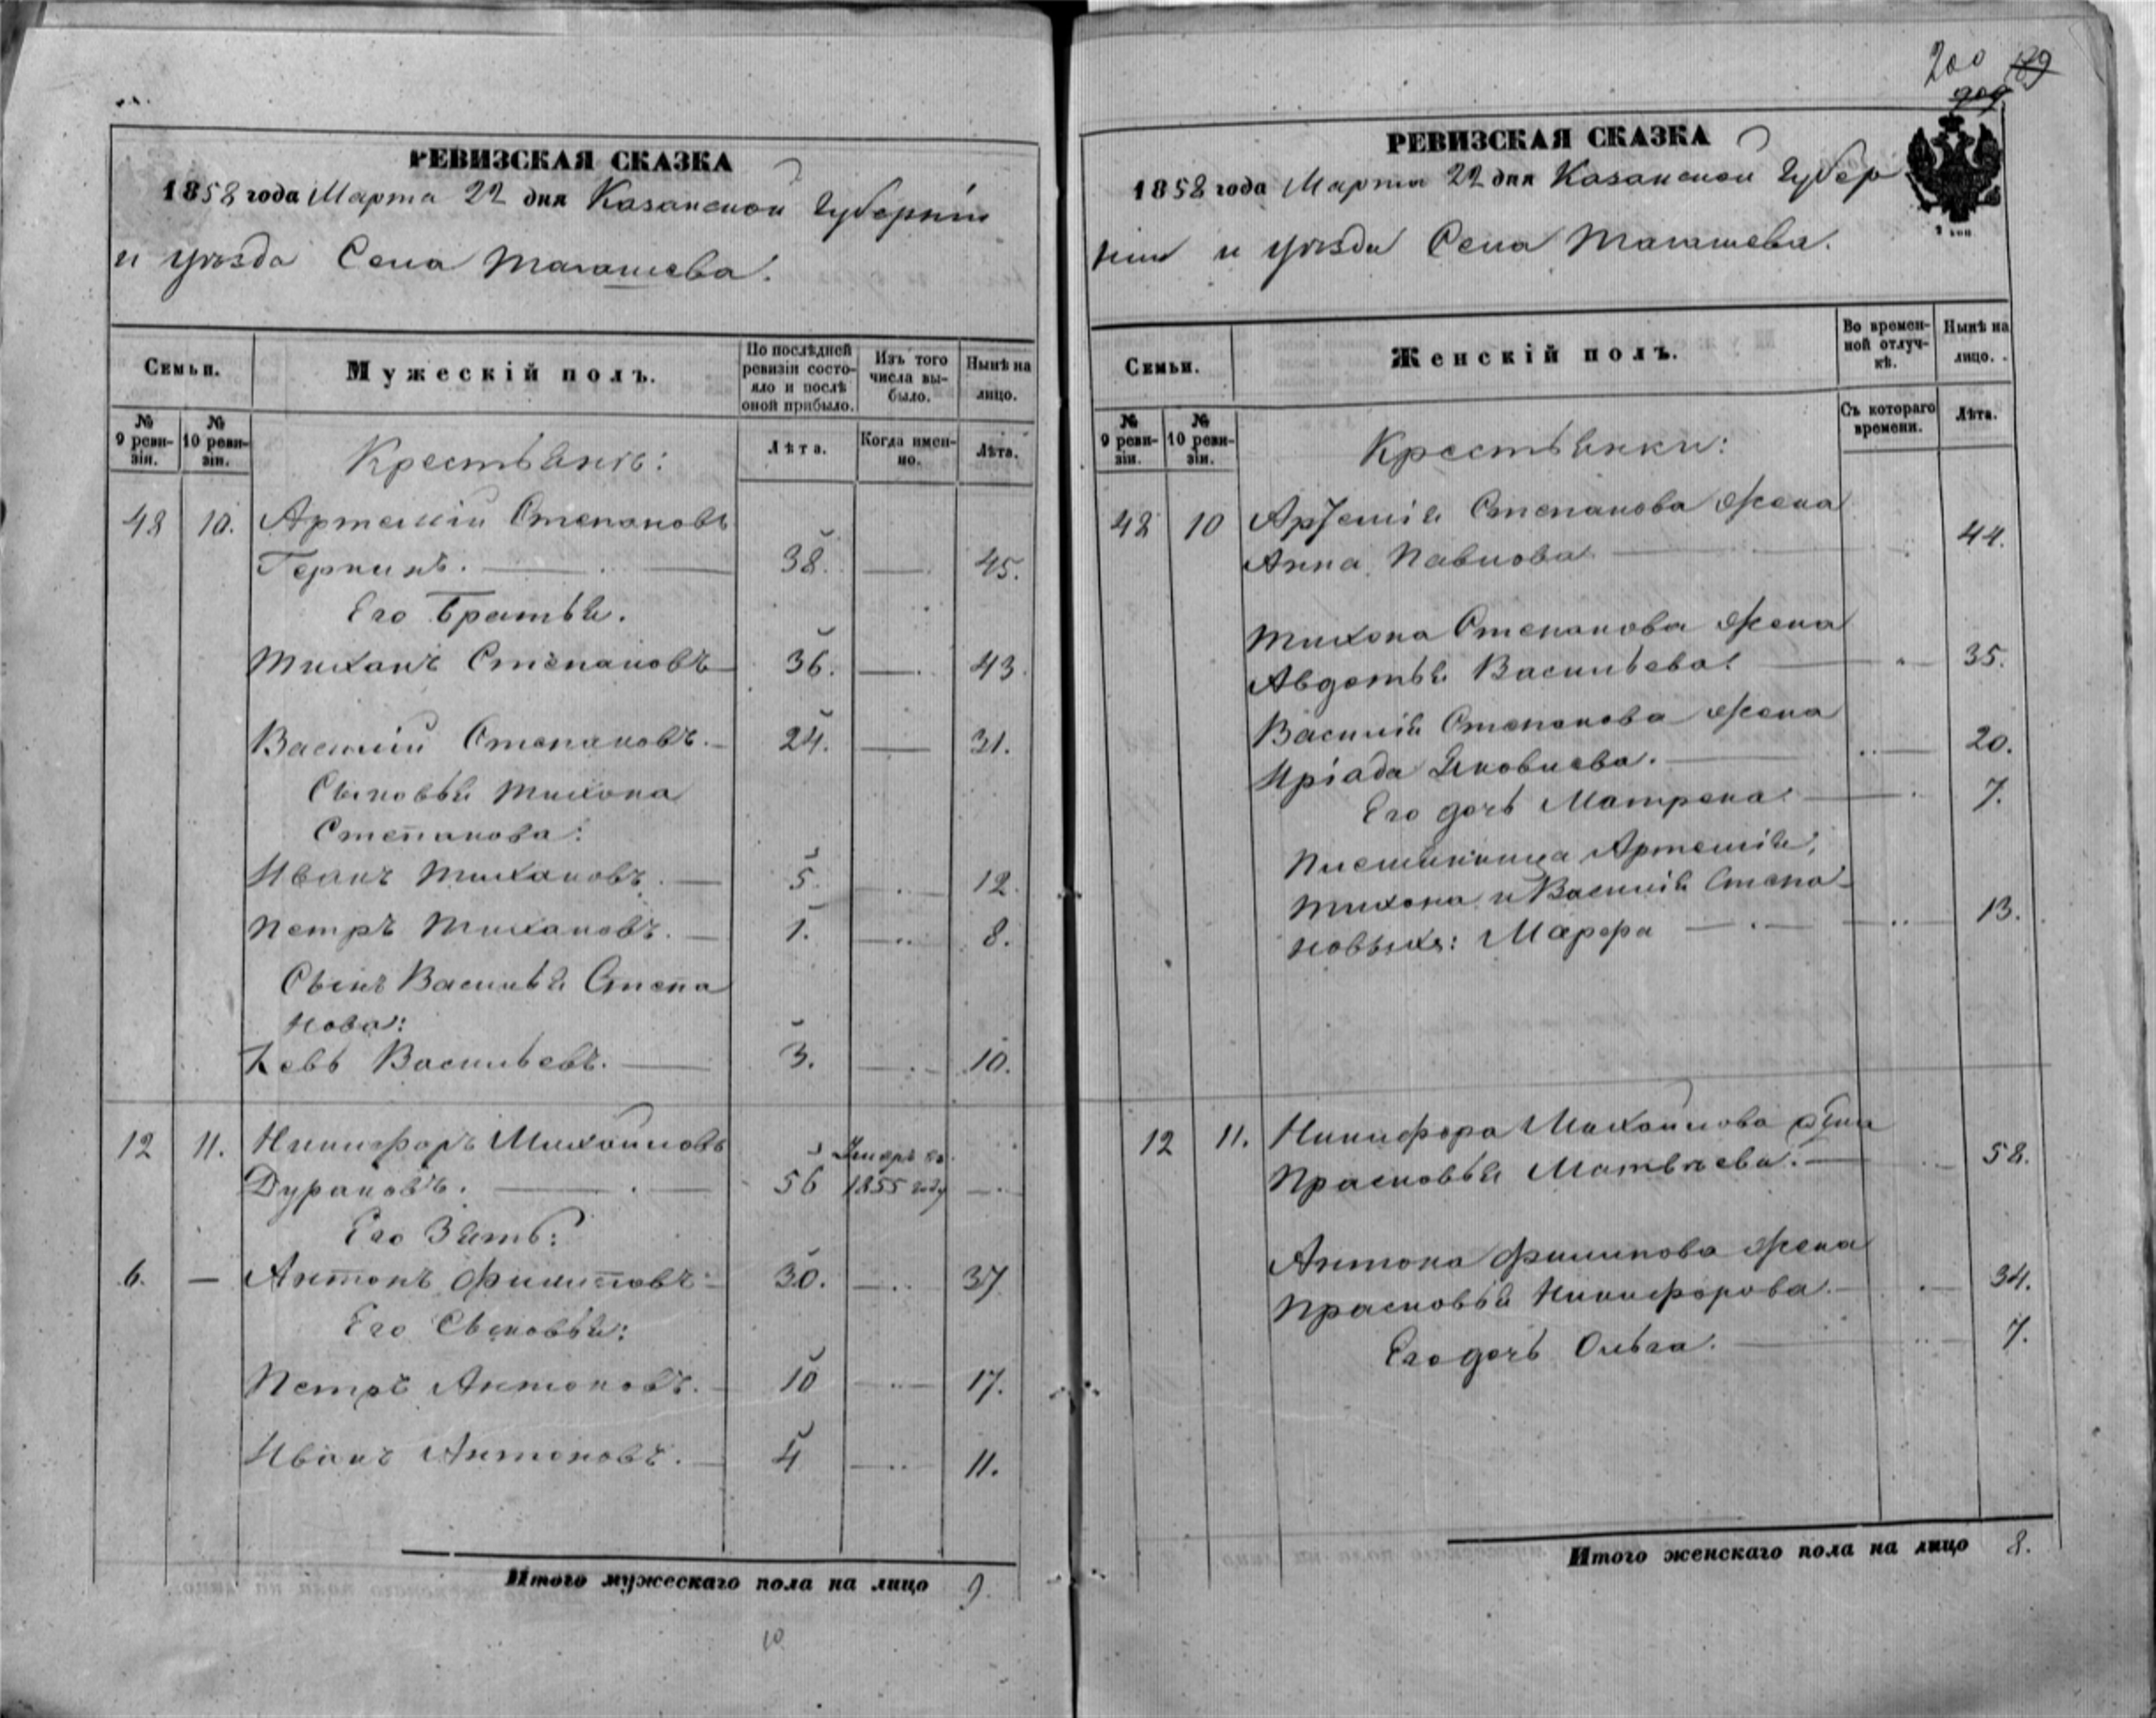 РЕВИЗСКАЯ СКАЗКА
1858 года Марта 22 дня Казанской Губерніи
и уѣзда Села Тагашева.
Семьи.
Мужескій полъ.
По послѣдней ревизіи состояло и послѣ оной прибыло.
Изъ того числа выбыло.
Нынѣ на лицо.
№ 9 ревизіи.
№ 10 ревизіи.
Крестьянѣ:
Лѣта.
Когда именно.
Лѣта.
48 10. Артемій Степановъ
38. 45.
Его Братья.
Тихонъ Степановъ 36. 43.
Василій Степановъ. 24. 31.
Сыновья Тихона
Степанова:
Иванъ Тихоновъ. 5. 12.
Петръ Тихоновъ. 1. 8.
Сынъ Василья Степа
нова:
Левъ Васильевъ. 3. 10.
12 11. Никифоръ Михайловъ
Дурановъ. 56 Умеръ въ 1855 году
Его Зять:
6. — Антонъ Филиповъ 30. 37
Его Сыновья:
Петръ Антоновъ. 10 17.
Иванъ Антоновъ. 4 11.
Итого мужескаго пола на лицо 9.
10
200 189
РЕВИЗСКАЯ СКАЗКА
1858 года Марта 22 дня Казанской Губер
ніи и уѣзда Села Тагашева.
Семьи.
Женскій полъ.
Во временной отлучкѣ.
Нынѣ на лицо.
№ 9 ревизіи.
№ 10 ревизіи.
Крестьянки:
Съ котораго времени.
Лѣта.
48 10 Артемія Степанова жена
Анна Павлова 44.
Тихона Степанова жена
Авдотья Васильева 35.
Василія Степанова жена
Иріада Яковлева. 20.
Его дочь Матрена 7.
Племянница Артемія,
Тихона и Василія Степа-
новыхъ: Марфа 13.
12 11. Никифора Михайлова жена
Прасковья Матвѣева. 58.
Антона Филипова жена
Прасковья Никифорова. 34.
Его дочь Ольга. 7.
Итого женскаго пола на лицо 8.